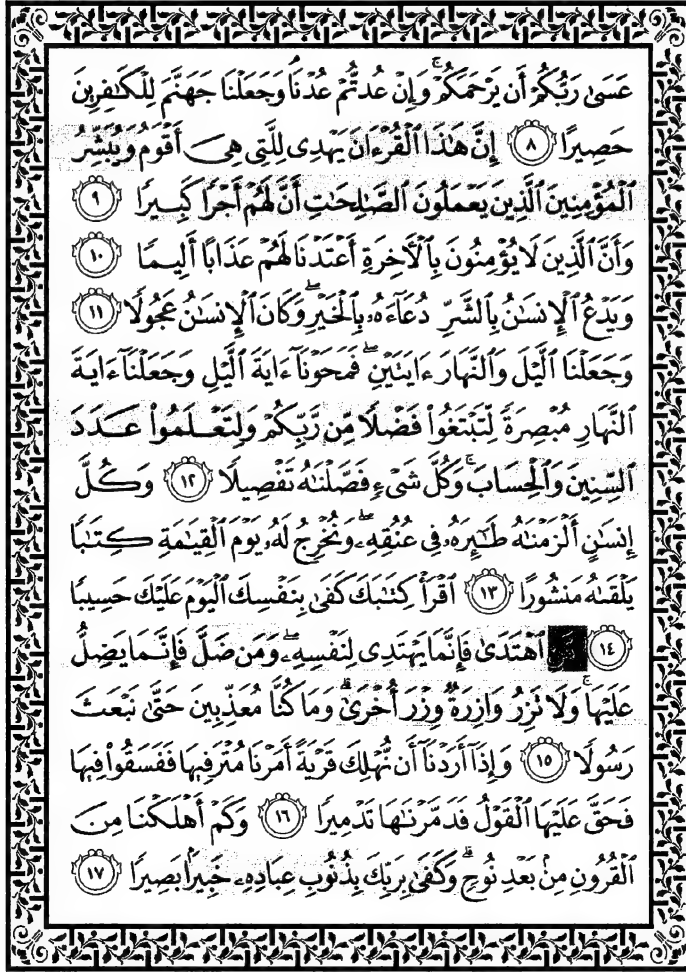 عَسَىٰ رَبُّكُمْ أَن يَرْحَمَكُمْ ۚ وَإِنْ عُدتُّمْ عُدْنَا ۘ وَجَعَلْنَا جَهَنَّمَ لِلْكَـٰفِرِينَ
حَصِيرًا ٨ إِنَّ هَـٰذَا ٱلْقُرْءَانَ يَهْدِى لِلَّتِى هِىَ أَقْوَمُ وَيُبَشِّرُ
ٱلْمُؤْمِنِينَ ٱلَّذِينَ يَعْمَلُونَ ٱلصَّـٰلِحَـٰتِ أَنَّ لَهُمْ أَجْرًا كَبِيرًا ٩
وَأَنَّ ٱلَّذِينَ لَا يُؤْمِنُونَ بِٱلْـَٔاخِرَةِ أَعْتَدْنَا لَهُمْ عَذَابًا أَلِيمًا ١٠
وَيَدْعُ ٱلْإِنسَـٰنُ بِٱلشَّرِّ دُعَآءَهُۥ بِٱلْخَيْرِ ۖ وَكَانَ ٱلْإِنسَـٰنُ عَجُولًا ١١
وَجَعَلْنَا ٱلَّيْلَ وَٱلنَّهَارَ ءَايَتَيْنِ ۖ فَمَحَوْنَآ ءَايَةَ ٱلَّيْلِ وَجَعَلْنَآ ءَايَةَ
ٱلنَّهَارِ مُبْصِرَةً لِّتَبْتَغُوا۟ فَضْلًا مِّن رَّبِّكُمْ وَلِتَعْلَمُوا۟ عَدَدَ
ٱلسِّنِينَ وَٱلْحِسَابَ ۚ وَكُلَّ شَىْءٍ فَصَّلْنَـٰهُ تَفْصِيلًا ١٢ وَكُلَّ
إِنسَـٰنٍ أَلْزَمْنَـٰهُ طَـٰٓئِرَهُۥ فِى عُنُقِهِۦ ۖ وَنُخْرِجُ لَهُۥ يَوْمَ ٱلْقِيَـٰمَةِ كِتَـٰبًا
يَلْقَىٰهُ مَنشُورًا ١٣ ٱقْرَأْ كِتَـٰبَكَ كَفَىٰ بِنَفْسِكَ ٱلْيَوْمَ عَلَيْكَ حَسِيبًا
١٤ ٱهْتَدَىٰ فَإِنَّمَا يَهْتَدِى لِنَفْسِهِۦ ۖ وَمَن ضَلَّ فَإِنَّمَا يَضِلُّ
عَلَيْهَا ۚ وَلَا تَزِرُ وَازِرَةٌ وِزْرَ أُخْرَىٰ ۗ وَمَا كُنَّا مُعَذِّبِينَ حَتَّىٰ نَبْعَثَ
رَسُولًا ١٥ وَإِذَآ أَرَدْنَآ أَن نُّهْلِكَ قَرْيَةً أَمَرْنَا مُتْرَفِيهَا فَفَسَقُوا۟ فِيهَا
فَحَقَّ عَلَيْهَا ٱلْقَوْلُ فَدَمَّرْنَـٰهَا تَدْمِيرًا ١٦ وَكَمْ أَهْلَكْنَا مِنَ
ٱلْقُرُونِ مِنۢ بَعْدِ نُوحٍ ۗ وَكَفَىٰ بِرَبِّكَ بِذُنُوبِ عِبَادِهِۦ خَبِيرًۢا بَصِيرًا ١٧